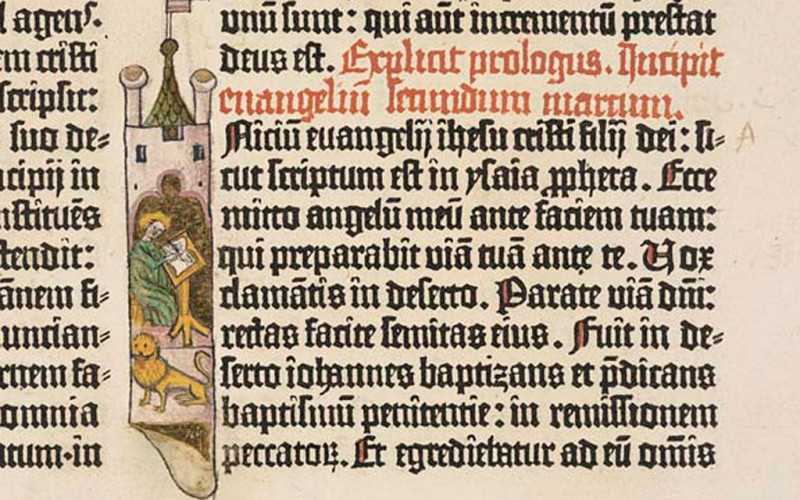 l agens.
em cristi
scripsit:
suo de⸗
ncipij in
nstituēs
tendit:
ānem fi⸗
nuncian⸗
rnem fa⸗
omnia
tum·in
unū sunt: qui aūt incrementū prestat
deus est. Explicit prologus. Incipit
euangeliū secundum marcum.
Niciū euangelij ihesu cristi filij dei: si⸗
cut scriptum est in ysaia ꝓpheta. Ecce
mitto angelū meū ante faciem tuam:
qui preparabit viā tuā ante te. Vox
clamātis in deserto. Parate viā dn̄i:
rectas facite semitas eius. Fuit in de⸗
serto iohannes baptizans et p̄dicans
baptismū penitentie: in remissionem
peccatoꝝ. Et egrediebatur ad eū om̄is
A